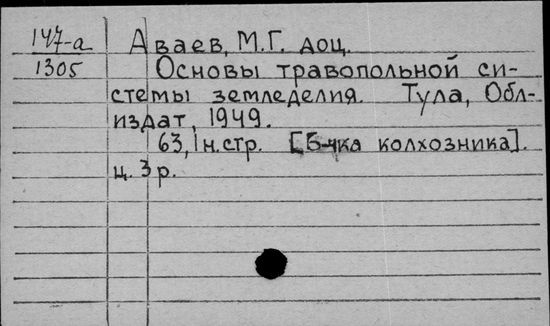 147-а
1305
Аваев, М.Г. доц.
Основы травопольной си-
стемы земледелия. Тула, Обл-
издат, 1949.
63, 1н.стр. [Б-чка колхозника].
ц. 3 р.